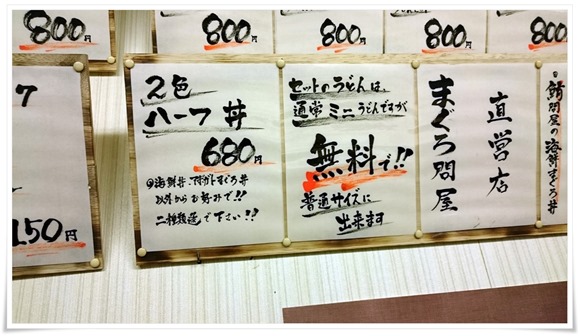 800円
800円
800円
800円
800円
7
150円
2色
ハーフ丼
680円
海鮮丼、
まぐろ丼
以外からお好みで!!
二種類選で下さい!!
セットのうどんは、
通常ミニうどんですが
無料で!!
普通サイズに
出来ます
まぐろ問屋
直営店
問屋の海鮮まぐろ丼